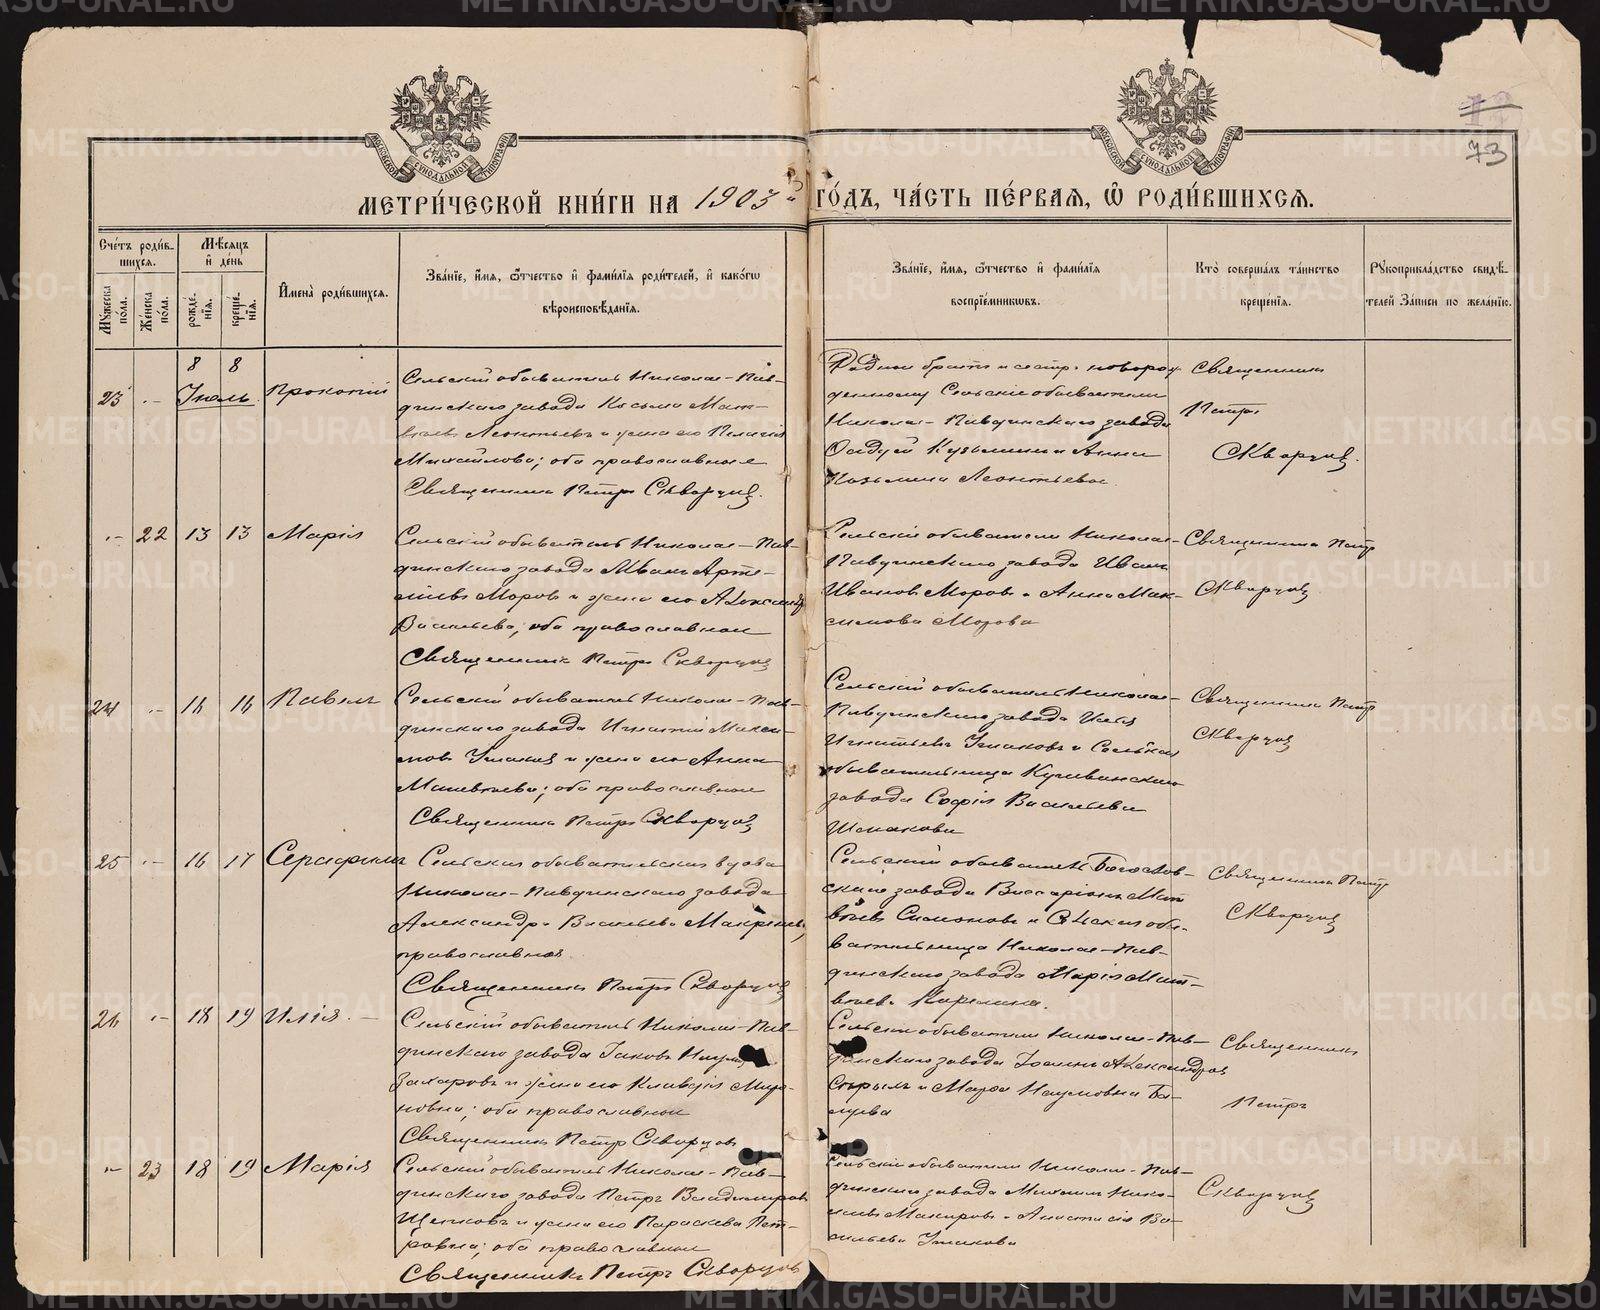 МЕТРИКИ.GASO-URAL.RU
73
МЕТРИ́ЧЕСКОЙ КНИ́ГИ НА 1903 ГО́ДЪ, ЧА́СТЬ ПЕ́РВАЯ, Ѡ РОДИ́ВШИХСЯ.
Сче́тъ роди́вшихся.
Му́жеска по́ла.
Же́нска по́ла.
Мѣ́сяцъ и҆ де́нь
рожде́нїя.
креще́нїя.
И҆мена̀ роди́вшихся.
Зва́нїе, и҆́мя, ѻ҆́тчество и҆ фами́лїя роди́телей, и҆ како́гѡ
вѣроисповѣ́данїя.
Зва́нїе, и҆́мя, ѻ҆́тчество и҆ фами́лїя
воспрїе́мниковъ.
Кто̀ соверша́лъ та́инство
креще́нїя.
Рꙋкоприкла́дство свидѣ́-
телей за́писи по жела́нїю.
23 8 8 Іюль Прокопій
Сельскій обыватель Николае-Пав-
динскаго завода Косьма Мат-
вѣевъ Леонтьевъ и жена его Пелагія
Михайлова; оба православные
Священникъ Петръ Скворцовъ.
Родные братъ и сестра новорож-
денному Сельскіе обыватели
Николае-Павдинскаго завода
Кузьминъ и Анна
Козьмина Леонтьевы.
Священникъ
Петръ
Скворцовъ.
22 13 13 Марія
Сельскій обыватель Николае-Пав-
динскаго завода Иванъ Арте-
мьевъ Моровъ и жена его Александра
Васильева; оба православные
Священникъ Петръ Скворцовъ
Сельскіе обыватели Николае-
Павдинскаго завода Иванъ
Ивановъ Моровъ и Анна Мак-
симова Морова
Священникъ Петръ
Скворцовъ
24 16 16 Павелъ
Сельскій обыватель Николае-Пав-
динскаго завода Игнатій Макси-
мовъ Ушаковъ и жена его Анна
Матвѣева; оба православные
Священникъ Петръ Скворцовъ
Сельскій обыватель Николае-
Павдинскаго завода
Игнатьевъ Ушаковъ и Сельская
обывательница Кушвинскаго
завода Софія Васильева
Священникъ Петръ
Скворцовъ
25 16 17 Серафимъ
Сельская обывательская вдова
Николае-Павдинскаго завода
Александра Васильева
православная.
Священникъ Петръ Скворцовъ
Сельскій обыватель Богослов-
скаго завода Виссаріонъ Мат-
вѣевъ Симоновъ и Сельская обы-
вательница Николае-Пав-
динскаго завода Марія Мат-
вѣева Карелина.
Священникъ Петръ
Скворцовъ
26 18 19 Илія
Сельскій обыватель Николае-Пав-
динскаго завода Іаковъ
Захаровъ и жена его Клавдія Миро-
новна; оба православные
Священникъ Петръ Скворцовъ
Сельскіе обыватели Николае-Пав-
динскаго завода Іоаннъ Александровъ
и Марѳа Наумовна
Священникъ
Петръ
23 18 19 Марія
Сельскій обыватель Николае-Пав-
динскаго завода Петръ Владиміровъ
Щепковъ и жена его Параскева Пет-
ровна; оба православные
Священникъ Петръ Скворцовъ
Сельскіе обыватели Николае-Пав-
динскаго завода Михаилъ Нико-
лаевъ Макаровъ и Анастасія Ва-
сильева Ушакова
Скворцовъ